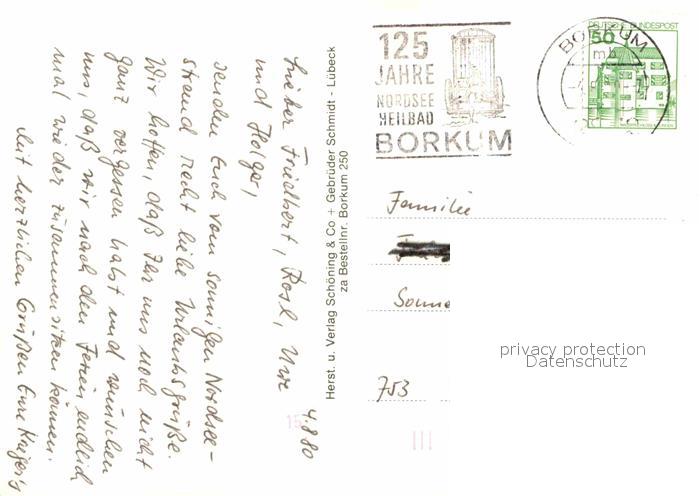 4.8.80
Lieber Friedhert, Rosl, Uwe
und Holger,
senden Euch vom sonnigen Nordsee-
strand recht liebe Urlaubsgrüße.
Wir hoffen, daß Ihr uns noch nicht
ganz vergessen habt und wünschen
uns, daß wir nach den Ferien endlich
mal wieder zusammensitzen können.
Mit herzlichen Grüßen Eure
Herst. u. Verlag Schöning & Co + Gebrüder Schmidt - Lübeck
za Bestellnr. Borkum 250
125
JAHRE
NORDSEE
HEILBAD
BORKUM
BORKUM
mb
DEUTSCHE BUNDESPOST
50
Familie
Sonne
753
privacy protection
Datenschutz